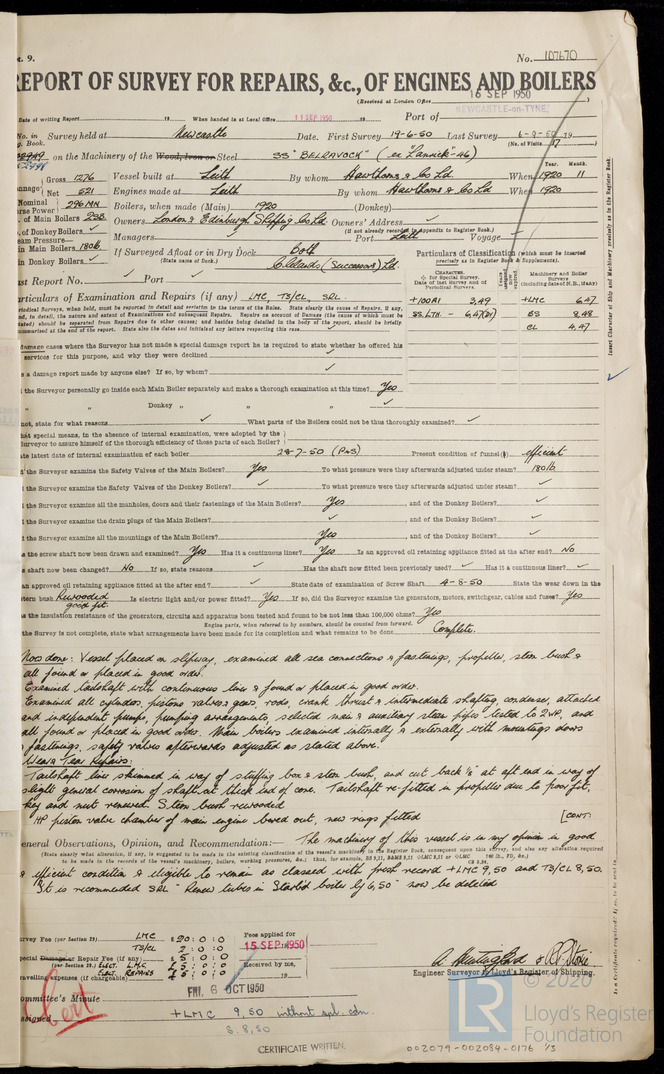 No. 107670
REPORT OF SURVEY FOR REPAIRS, &c., OF ENGINES AND BOILERS
(Received at London Office 16 SEP 1950)
Date of writing Report 19 When handed in at Local Office 11 SEP 1950 19 Port of NEWCASTLE-on-TYNE
No. in Survey held at Newcastle Date. First Survey 19-6-50 Last Survey 6-9-50 19
Book. (No. of Visits 17)
on the Machinery of the Wood, Iron or Steel SS "BELRAVOCK" (ex "Lanrick"-46)
Gross 1276 Vessel built at Leith By whom Hawthorns & Co Ld When 1920 11
Net 521 Engines made at Leith By whom Hawthorns & Co Ld When 1920
Nominal Horse Power 296 MN Boilers, when made (Main) 1920 (Donkey)
of Main Boilers 2SB Owners London & Edinburgh Shipping Co Ld Owners' Address
of Donkey Boilers ✓ (if not already recorded in Appendix to Register Book.)
Steam Pressure Managers Port Leith Voyage
in Main Boilers 180lb If Surveyed Afloat or in Dry Dock Both
in Donkey Boilers ✓ (State name of Dock.) Clelands (Successors) Ld.
Particulars of Classification (which must be inserted precisely as in Register Book & Supplements).
+100A1 3,49 +LMC 6,47
SS.LTH. - 6,47(21) BS 8,48
CL 4,47
Last Report No. ✓ Port ✓
Particulars of Examination and Repairs (if any) LMC TS/CL SRL
damage cases where the Surveyor has not made a special report he is required to state whether he offered his
services for this purpose, and why they were declined ✓
a damage report made by anyone else? If so, by whom? ✓
the Surveyor personally go inside each Main Boiler separately and make a thorough examination at this time? Yes
" " Donkey " " " ✓
not, state for what reasons ✓ What parts of the Boilers could not be thus thoroughly examined? ✓
what special means, in the absence of internal examination, were adopted by the
Surveyor to assure himself of the thorough efficiency of those parts of each Boiler? ✓
latest date of internal examination of each boiler 28-7-50 (P&S) Present condition of funnel(s) efficient
the Surveyor examine the Safety Valves of the Main Boilers? Yes To what pressure were they afterwards adjusted under steam? 180lb
the Surveyor examine the Safety Valves of the Donkey Boilers? ✓ To what pressure were they afterwards adjusted under steam? ✓
the Surveyor examine all the manholes, doors and their fastenings of the Main Boilers? Yes, and of the Donkey Boilers? ✓
the Surveyor examine the drain plugs of the Main Boilers? ✓, and of the Donkey Boilers? ✓
the Surveyor examine all the mountings of the Main Boilers? Yes, and of the Donkey Boilers? ✓
the screw shaft now been drawn and examined? Yes Has it a continuous liner? Yes Is an approved oil retaining appliance fitted at the after end? No
shaft now been changed? No If so, state reasons ✓ Has the shaft now fitted been previously used? ✓ Has it a continuous liner? ✓
an approved oil retaining appliance fitted at the after end? ✓ State date of examination of Screw Shaft 4-8-50 State the wear down in the
stern bush Rewooded good fit. Is electric light and/or power fitted? Yes If so, did the Surveyor examine the generators, motors, switchgear, cables and fuses? Yes
the insulation resistance of the generators, circuits and apparatus been tested and found to be not less than 100,000 ohms? Yes
Engine parts, when referred to by numbers, should be counted from forward.
the Survey is not complete, state what arrangements have been made for its completion and what remains to be done Complete.
Now done: Vessel placed on slipway, examined all sea connections & fastenings, propeller, stern bush &
all found or placed in good order.
Examined tailshaft with continuous liner & found or placed in good order.
Examined all cylinders, pistons valves, gears, rods, crank thrust & intermediate shafting, condenser, attached
and independent pumps, pumping arrangements, selected main & auxiliary steam pipes tested to 2WP, and
all found or placed in good order. Main boilers examined internally & externally with mountings doors
& fastenings, safety valves afterwards adjusted as stated above.
Wear & Tear Repairs:
Tailshaft liner skimmed in way of stuffing box & stern bush, and cut back ⅛" at aft end in way of
slight general corrosion of shaft at thick end of cone. Tailshaft re-fitted in propeller due to poor fit,
key and nut renewed. Stern bush rewooded
HP piston valve chamber of main engine bored out, new rings fitted [CONT.
General Observations, Opinion, and Recommendation:— The machinery of this vessel is in my opinion in good
& efficient condition & eligible to remain as classed with fresh record +LMC 9,50 and TS/CL 8,50.
It is recommended SRL "Renew tubes in Starbd boiler by 6,50" now be deleted
Survey Fee (per Section 29) LMC £20:0:0 Fees applied for
TS/CL 2:0:0 15 SEP 1950
Special Damage or Repair Fee (if any) £5:0:0 Received by me,
(per Section 29.) ELECT. L.M.C £5:0:0
ELECT. REPAIRS £5:0:0 19
Travelling expenses (if chargeable)
Engineer Surveyor to Lloyd's Register of Shipping.
Committee's Minute FRI. 6 OCT 1950
Cert
Assigned +LMC 9,50 without spl. cdn.
S. 8,50
CERTIFICATE WRITTEN.
002079-002084-0176 1/3
© 2020
LR
Lloyd's Register
Foundation